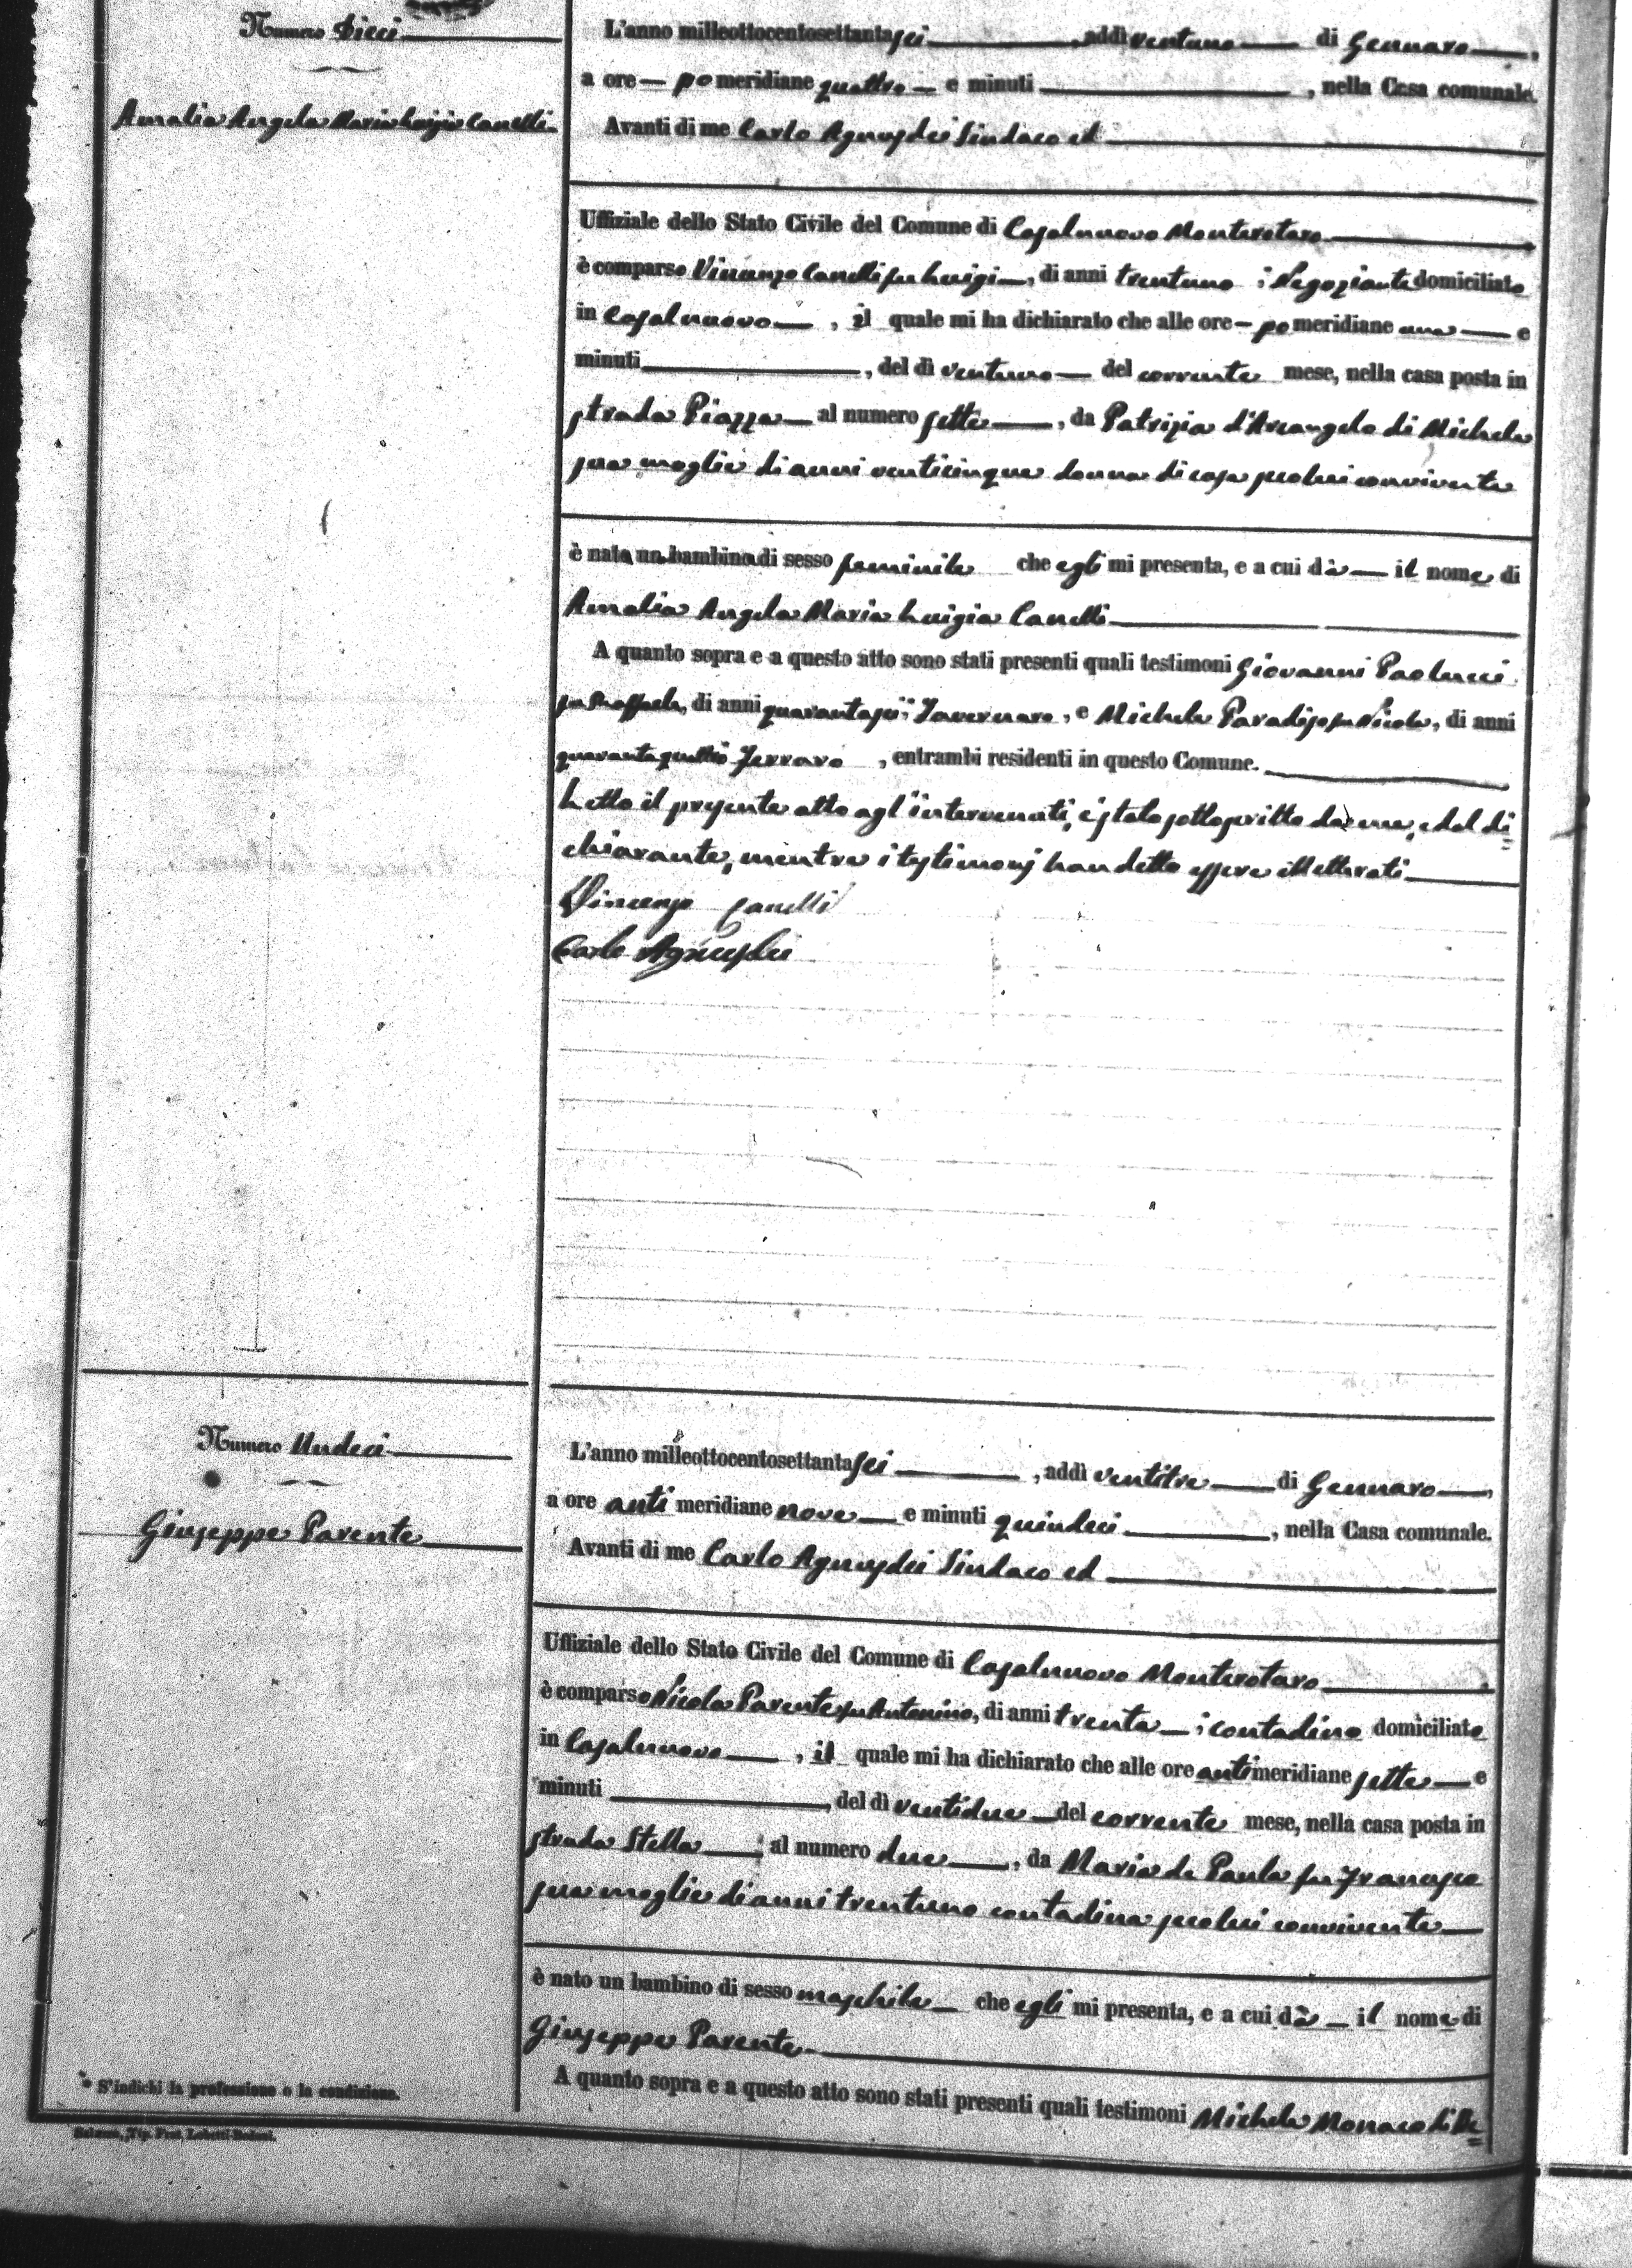 Numero Dieci
Amalia Angela Maria Luigia Canelli
L'anno milleottocentosettantasei, addì ventuno di Gennaro,
a ore — pomeridiane quattro — e minuti, nella Casa comunale.
Avanti di me Carlo Agnusdei Sindaco ed
Uffiziale dello Stato Civile del Comune di Casalnuovo Monterotaro
è comparso Vincenzo Canelli fu Luigi, di anni trentuno; Negoziante domiciliato
in Casalnuovo, il quale mi ha dichiarato che alle ore — pomeridiane una — e
minuti, del dì ventuno — del corrente mese, nella casa posta in
strada Piazza — al numero sette, da Patrizia d'Arcangelo di Michele
sua moglie di anni venticinque donna di casa seco lui convivente
è nata una bambina di sesso feminile che egli mi presenta, e a cui dà — il nome di
Amalia Angela Maria Luigia Canelli
A quanto sopra e a questo atto sono stati presenti quali testimoni Giovanni Paolucci
fu Raffaele, di anni quarantasei; Tavernaro, e Michele Paradiso fu Nicola, di anni
quarantaquattro Ferraro, entrambi residenti in questo Comune.
Letto il presente atto agl'intervenuti, è stato sottoscritto da me, e dal di=
chiarante, mentre i testimonj han detto essere illetterati
Vincenzo Canelli
Carlo Agnusdei
Numero Undeci
Giuseppe Parente
L'anno milleottocentosettantasei, addì ventitre di Gennaro,
a ore anti meridiane nove — e minuti quindeci, nella Casa comunale.
Avanti di me Carlo Agnusdei Sindaco ed
Uffiziale dello Stato Civile del Comune di Casalnuovo Monterotaro
è comparso Nicola Parente fu Antonino, di anni trenta —; contadino domiciliato
in Casalnuovo, il quale mi ha dichiarato che alle ore antimeridiane sette — e
minuti, del dì ventidue — del corrente mese, nella casa posta in
strada Stella — al numero due, da Maria de Paula fu Francesco
sua moglie di anni trentuno contadina seco lui convivente
è nato un bambino di sesso maschile — che egli mi presenta, e a cui dà — il nome di
Giuseppe Parente
A quanto sopra e a questo atto sono stati presenti quali testimoni Michele Monaco di
* S'indichi la professione o la condizione.